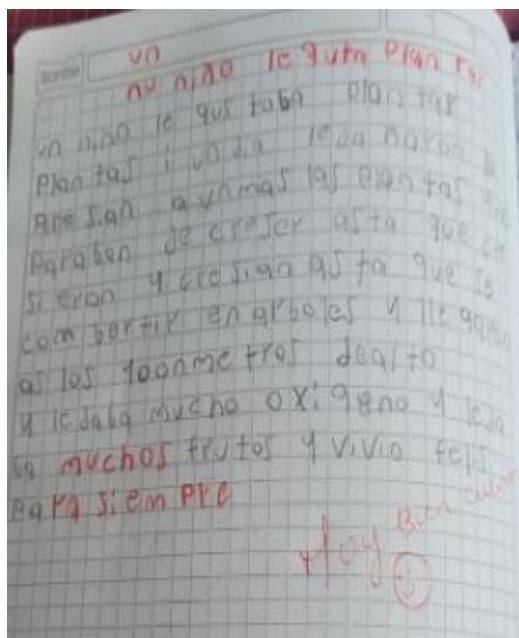 scribe
un
nu niño le guta plan tar
un niño le gus taba plan tar
plan tas i un dia le da
cresian a unmas las plan tas
paraban de creser asta que cre
si eron y cresian as ta que se
com bertir en arboles y lle garon
as los 100nmetros dealto
y le daba mucho oxi geno y leda
ba muchos frutos y vivio felis
para siem pre
Muy Buen